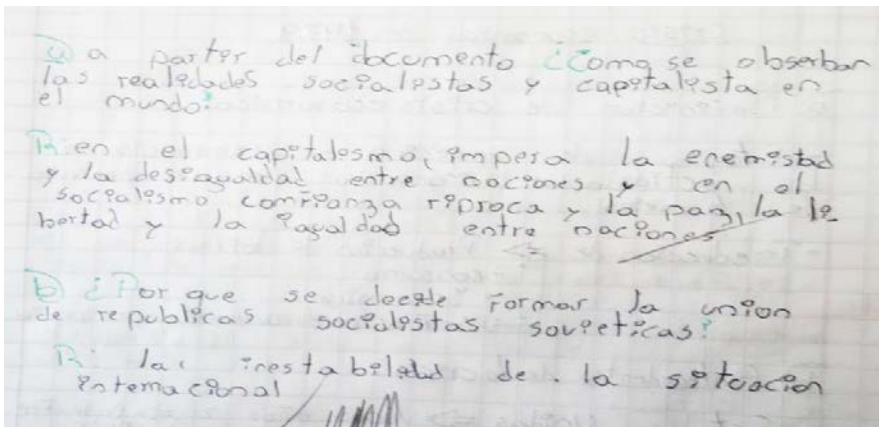 a) a partir del documento ¿Como se obserban
las realidades socialistas y capitalista en
el mundo?
R: en el capitalismo, impera la enemistad
y la desiagualdad entre naciones y en el
socialismo comfianza riproca y la paz, la li
bertad y la iagualdad entre naciones
b) ¿Por que se decide formar la union
de republicas socialistas sovieticas?
R: la inestabilidad de la situacion
internacional